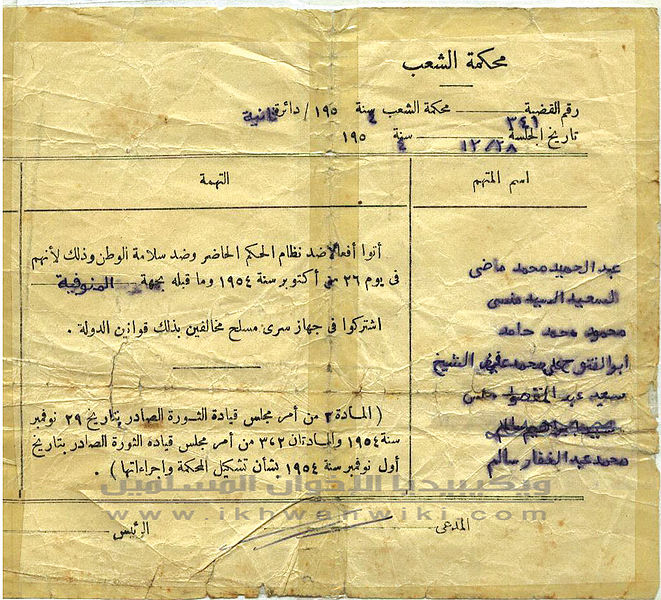 محكمة الشعب
رقم القضية ٣٤١ محكمة الشعب سنة ١٩٥٤ / دائرة ثانية
تاريخ الجلسة ١٢/٢٨ سنة ١٩٥٤
اسم المتهم
التهمة
عبد الحميد محمد ماضى
السعيد السيد منسى
محمود محمد حامد
ابو الفتوح على محمد الشيخ
سعيد عبد
محمد عبد الغفار سالم
أتوا أفعالا ضد نظام الحكم الحاضر وضد سلامة الوطن وذلك لأنهم
فى يوم ٢٦ من أكتوبر سنة ١٩٥٤ وما قبله بجهة المنوفية
اشتركوا فى جهاز سرى مسلح مخالفين بذلك قوانين الدولة .
( المادة ٢ من أمر مجلس قيادة الثورة الصادر بتاريخ ٢٩ نوفمبر
سنة ١٩٥٤ والمادتان ٣٤٢ من أمر مجلس قيادة الثورة الصادر بتاريخ
أول نوفمبر سنة ١٩٥٤ بشأن تشكيل المحكمة وإجراءاتها ) .
ويكيبيديا الإخوان المسلمين
www.ikhwanwiki.com
المدعى
الرئيس